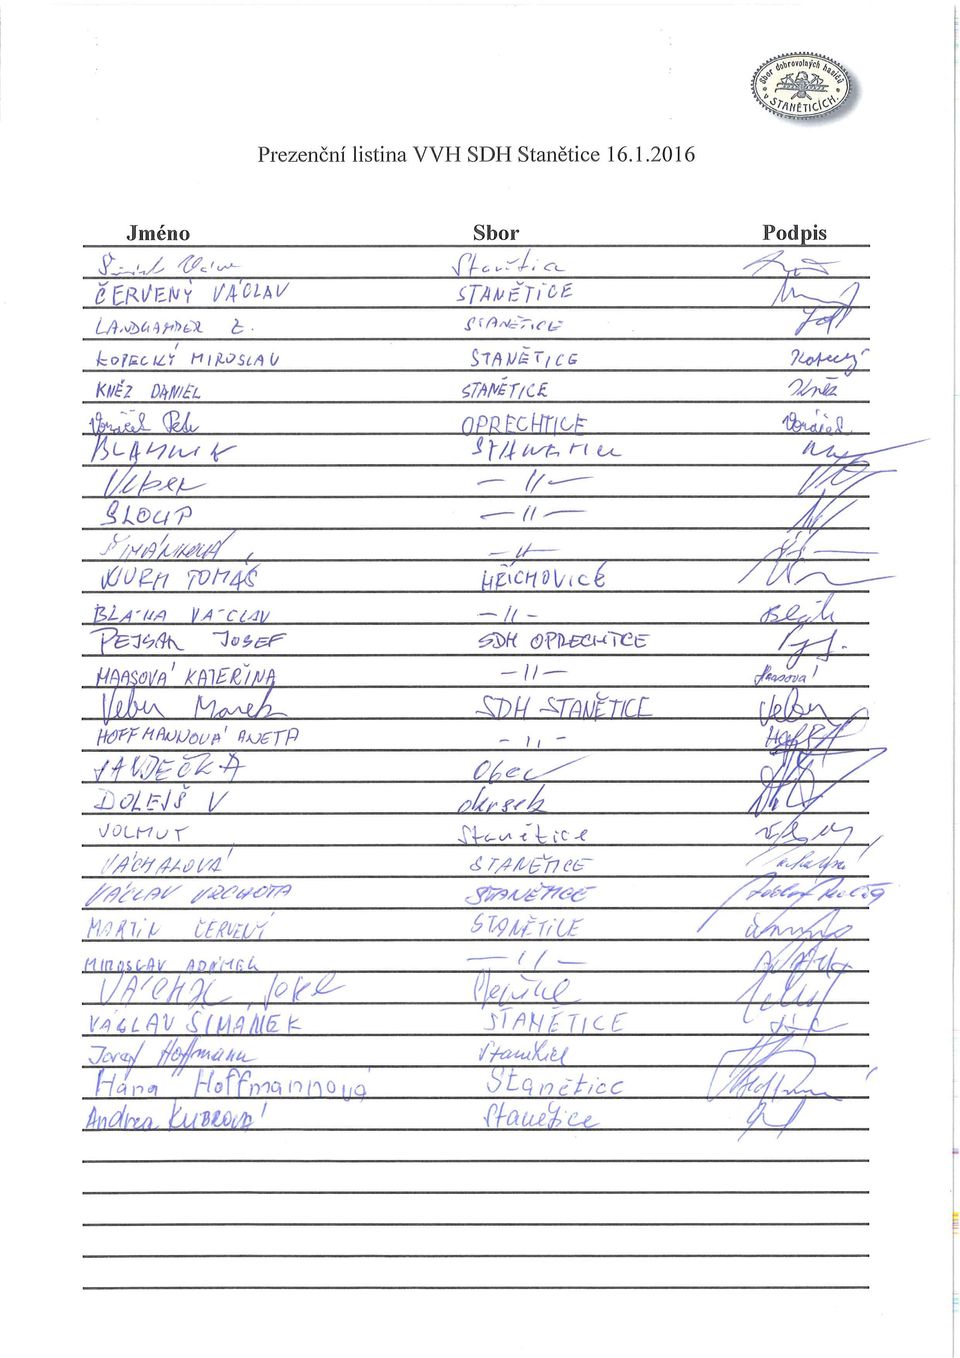 Sbor dobrovolných hasičů
v STANĚTICÍCH.
Prezenční listina VVH SDH Stanětice 16.1.2016
Jméno Sbor Podpis
Stanětice
ČERVENÝ VÁCLAV STANĚTICE
LANDGAMMER Z. STANĚTICE
KOPECKÝ MIROSLAV STANĚTICE Kopecký
KNĚZ DANIEL STANĚTICE Kněz
Petr OPRECHTICE
BLAHNIK STANETICE
Veber - // -
SLOUP - // -
ŠIMÁNKOVÁ - // -
WURM TOMÁŠ HŘÍCHOVICE
BLAHA VÁCLAV - // -
PEJSAR JOSEF SDH OPRECHTICE
HAASOVÁ KATEŘINA - // - Haasová
Veber Marek SDH STANĚTICE Veber
HOFFMANNOVÁ ANETA - // -
JANDEČKA Obec
DOLEJŠ V okrsek
VOLMUT Stanětice
VÁCHALOVÁ STANĚTICE
VÁCLAV VRCHOTA STANĚTICE
MARTIN ČERVENÝ STANĚTICE
MIROSLAV ADAMEK - // -
VÁCHAL
VÁCLAV ŠIMÁNEK STANĚTICE
Josef Hoffmann Stanětice
Hana Hoffmannová Stanětice
Andrea Stanětice